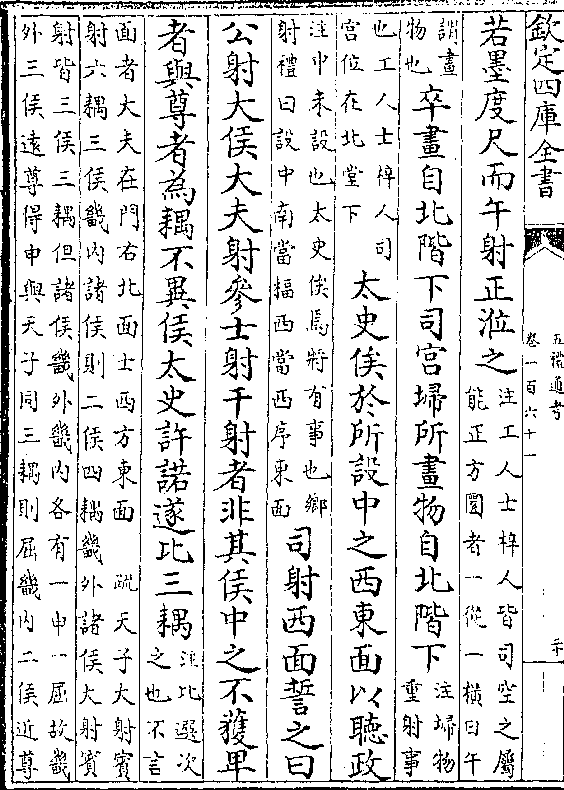 欽定四庫全書
五禮通考
卷一百六十一
若墨度尺而午射正涖之
注工人士梓人皆司空之屬
能正方圜者一從一橫曰午
謂畫
物也
卒畫自北階下司宫埽所畫物自北階下
注埽物
重射事
也工人士梓人司
宫位在北堂下
太史俟於所設中之西東面以聽政
注中未設也太史俟焉將有事也鄉
射禮曰設中南當楅西當西序東面
司射西面誓之曰
公射大侯大夫射參士射干射者非其侯中之不獲卑
者與尊者為耦不異侯太史許諾遂比三耦
注比選次
之也不言
面者大夫在門右北面士西方東面 疏天子大射賓
射六耦三侯畿内諸侯則二侯四耦畿外諸侯大射賓
射皆三侯三耦但諸侯畿外畿内各有一申一屈故畿
外三侯遠尊得申與天子同三耦則屈畿内二侯近尊